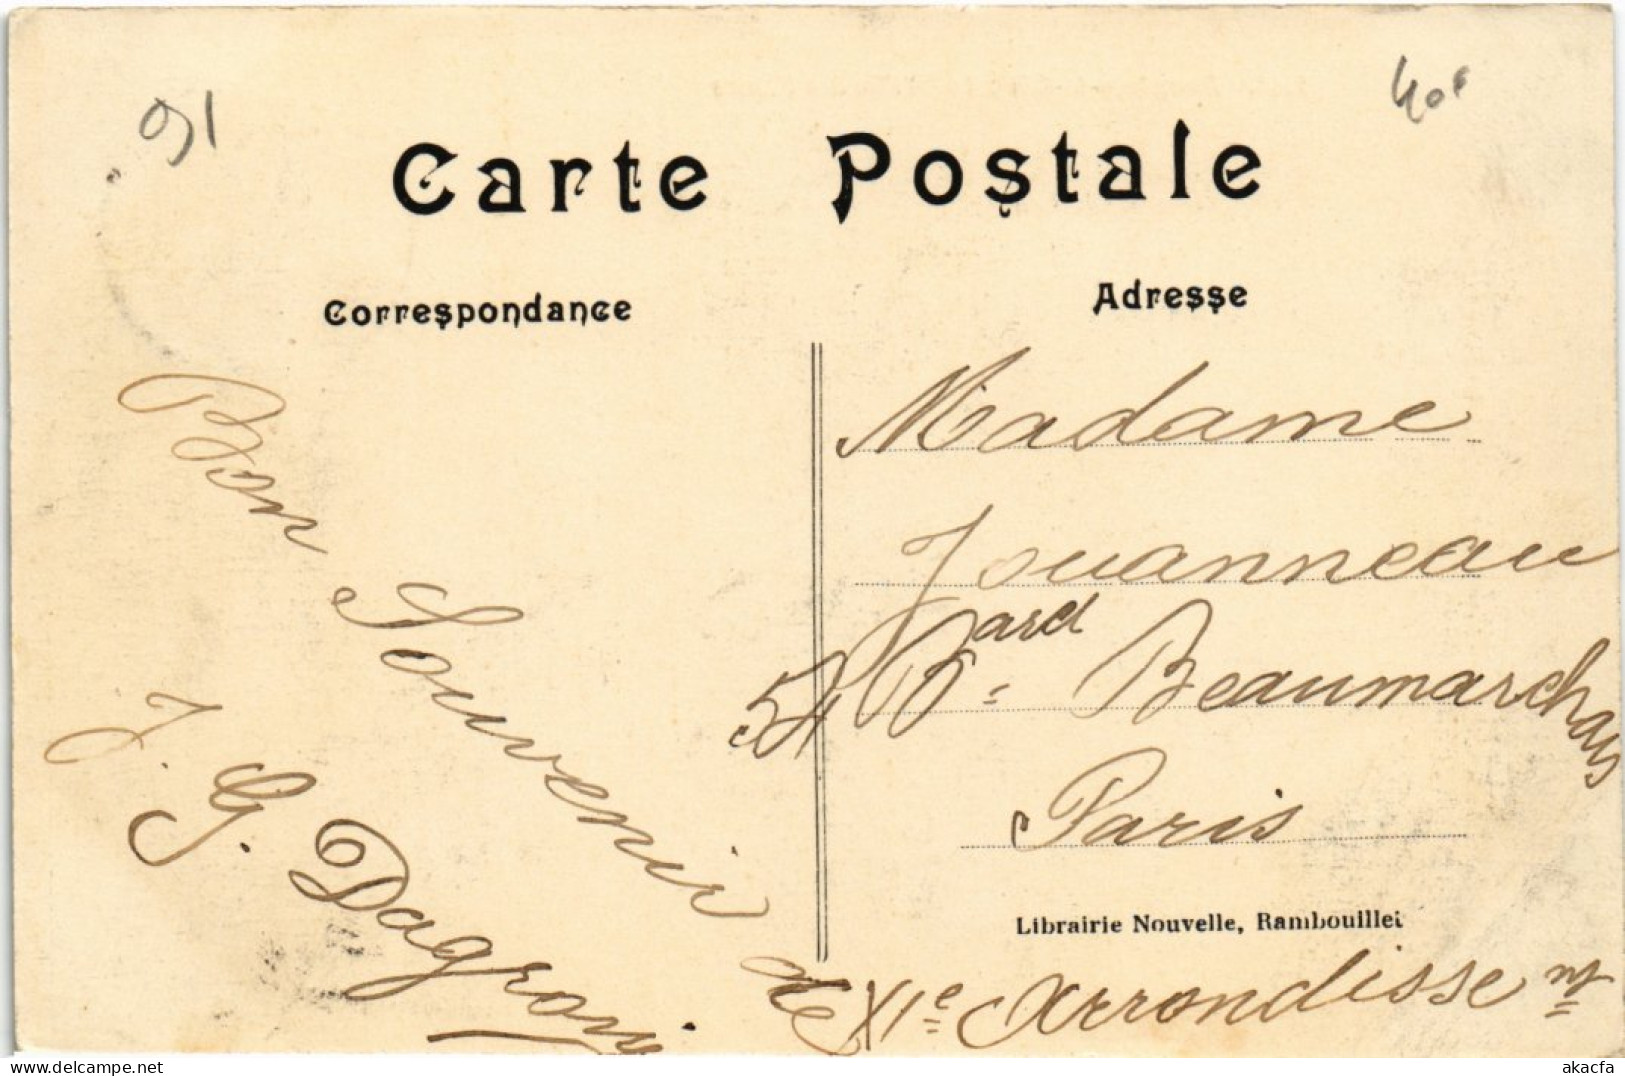 91
Carte Postale
Correspondance
Adresse
Bon Souvenir de
J. G. Dagron
Madame
Jouanneau
54 Bard Beaumarchais
Paris
Librairie Nouvelle, Rambouillet
XIe Arrondissemt
delcampe.net
akacfa